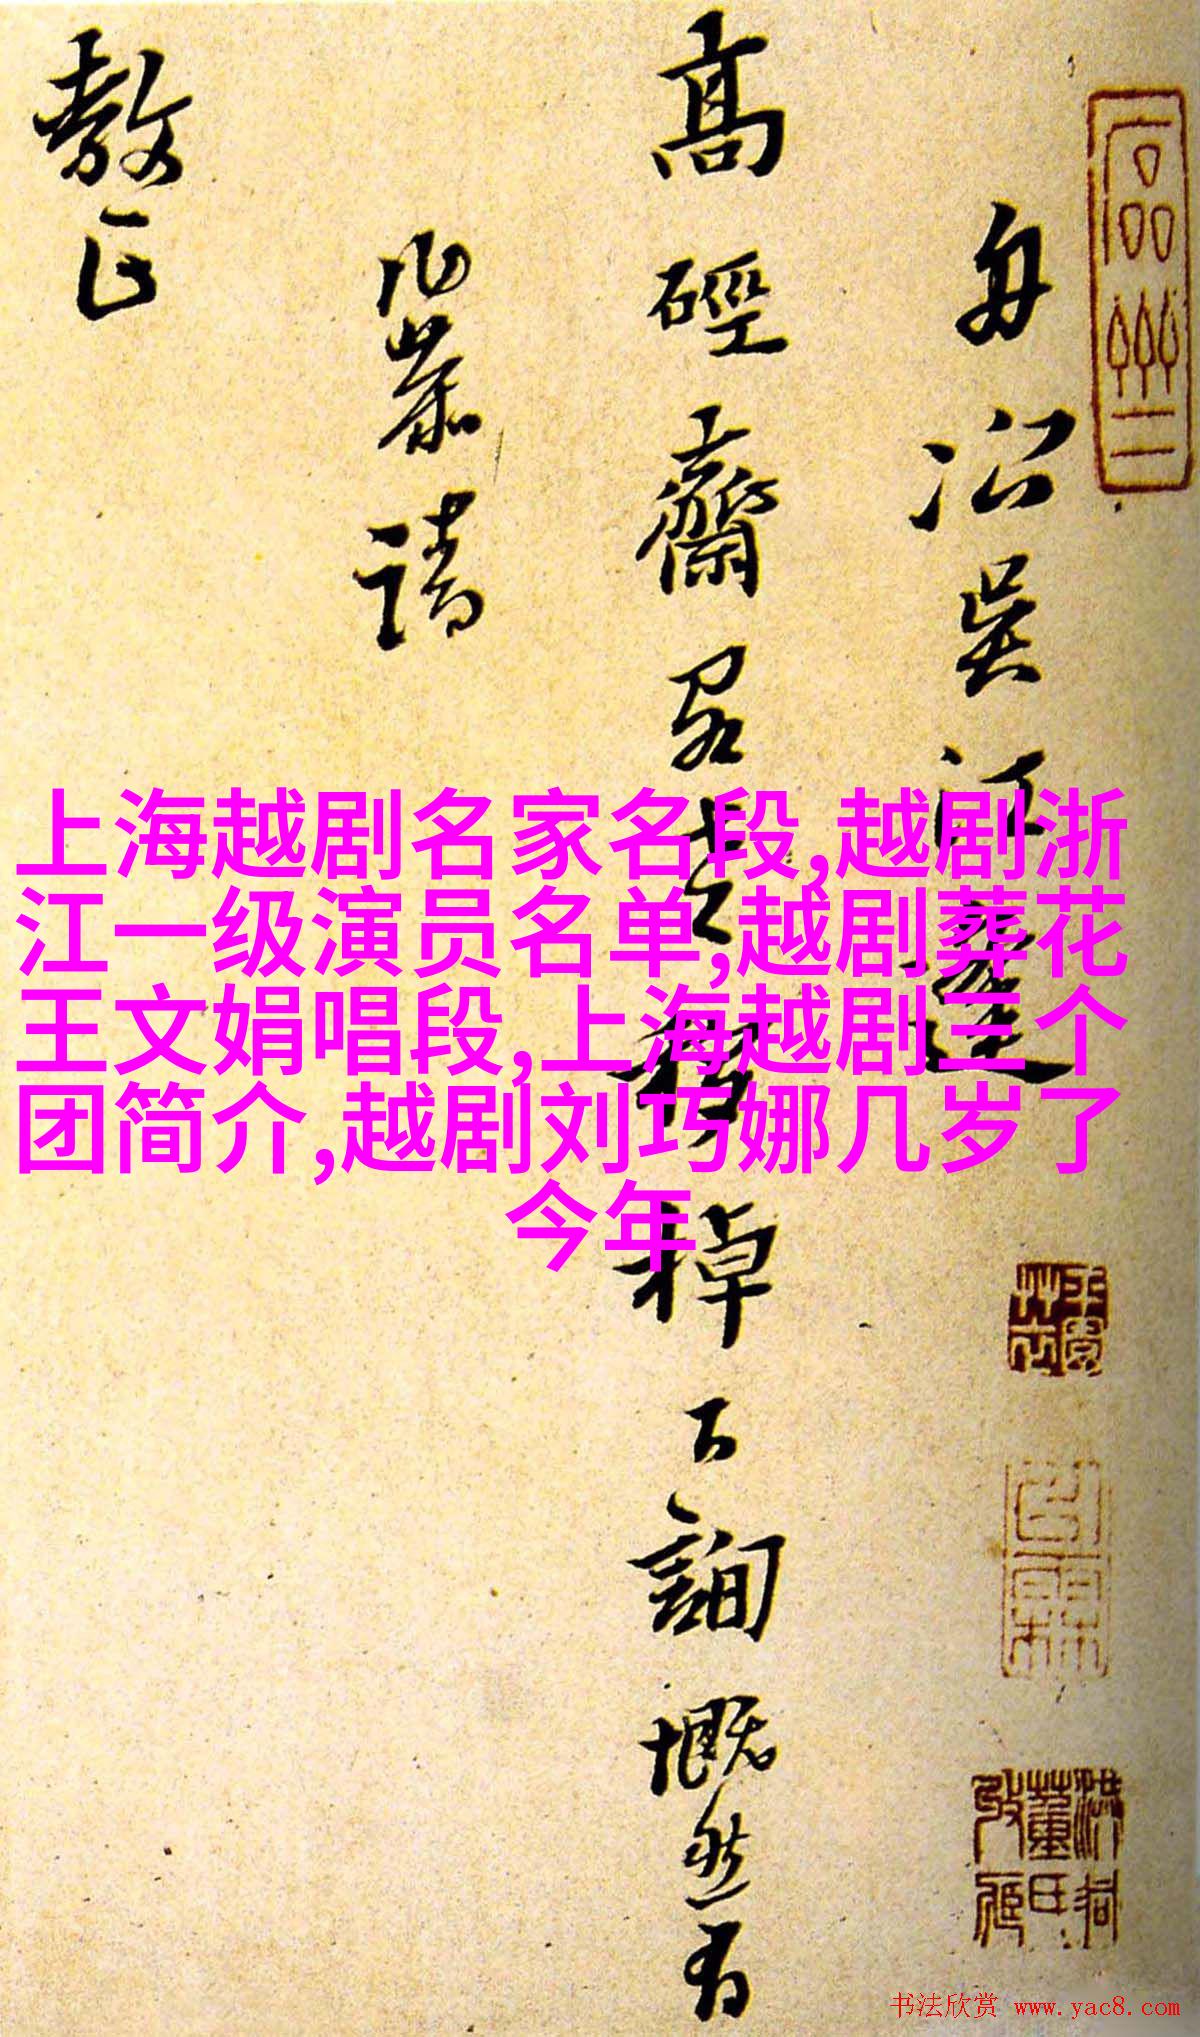 舟沿吴江
高硜齋棹下詢慨然有
請
教正
上海越剧名家名段,越剧浙
江一级演员名单,越剧葬花
王文娟唱段,上海越剧三个
团简介,越剧刘巧娜几岁了
今年
书法欣赏 www.yac8.com